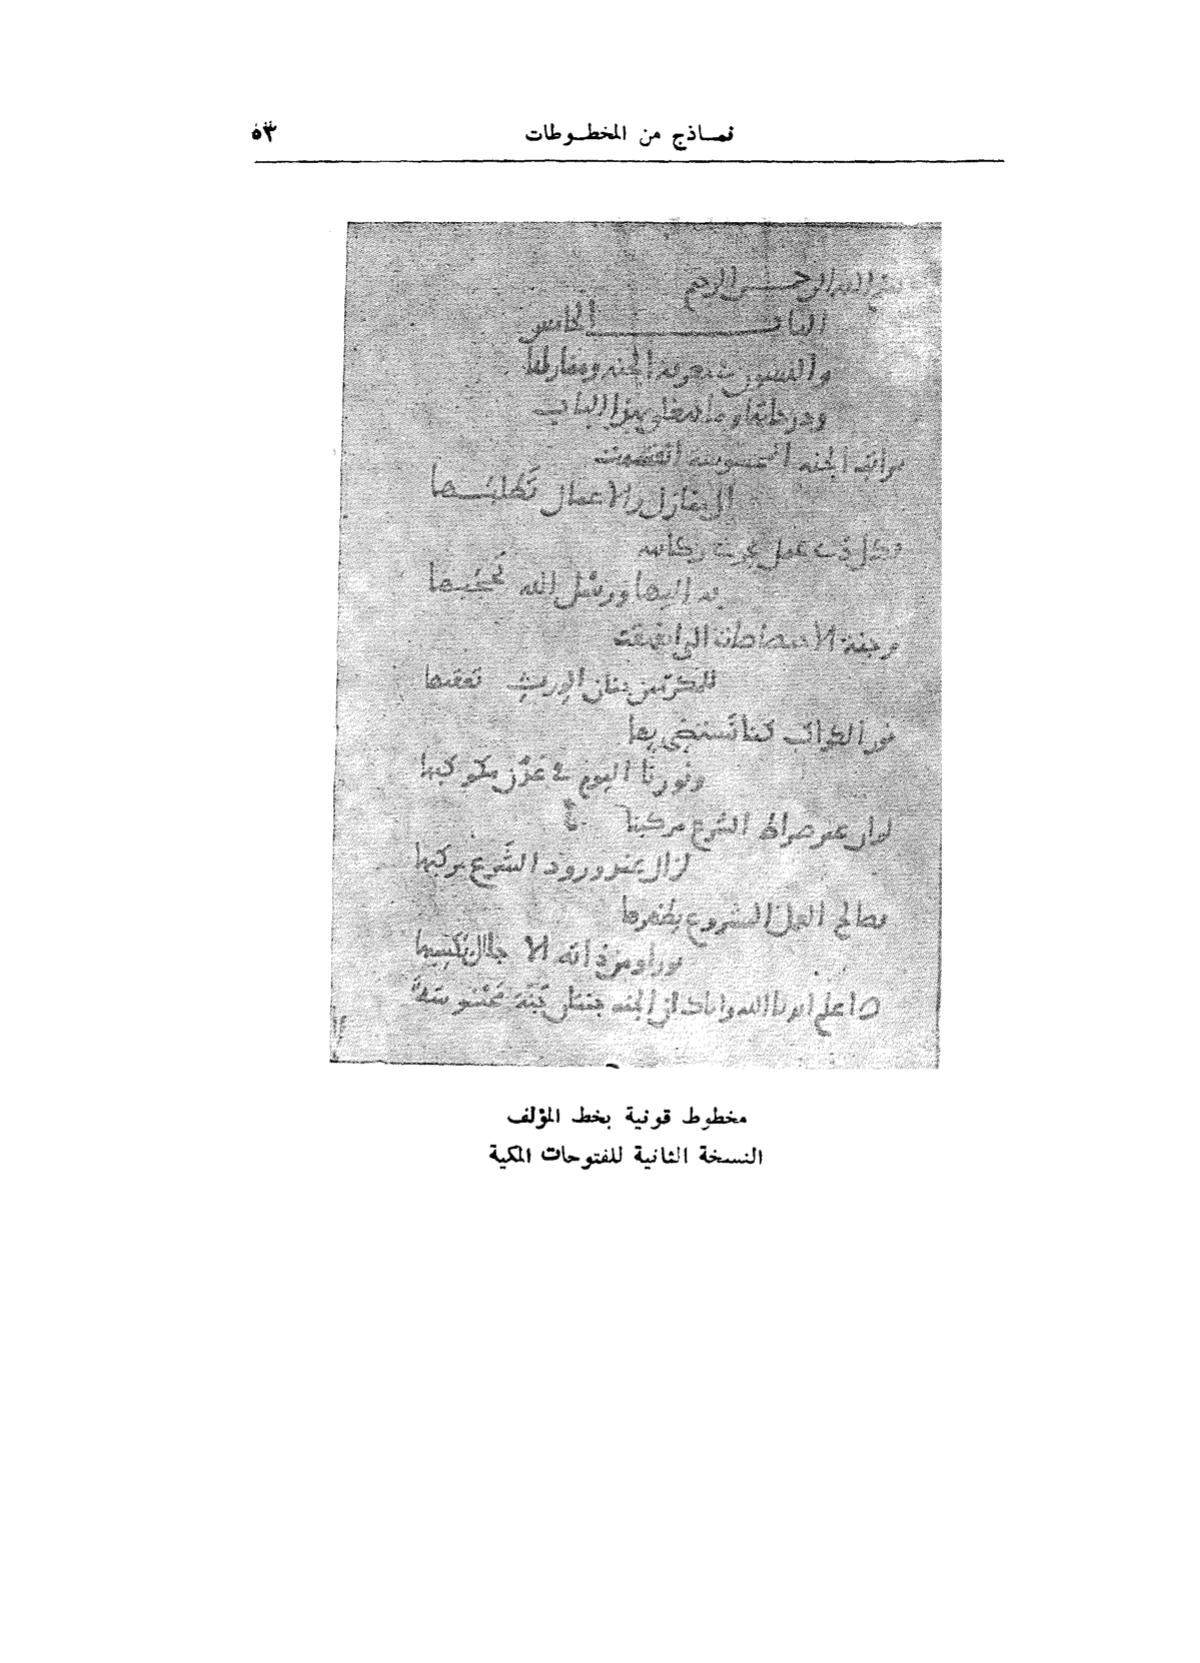 نماذج من المخطوطات
٥٣
بسم الله الرحمن الرحيم
الباب الخامس
والستون في معرفة الجنة ومنازلها
ودرجاتها وما يتعلق بهذا الباب
مراتب الجنة المحسوسة انقسمت
الى منازل والاعمال تطلبها
وكل ذي عمل تجرى ركائبه
به اليها ورسل الله تحجبها
وجنة الاختصاصات التي
تعقبها
نور الكواكب كنا نستضي بها
ونورنا اليوم في عدن يكوكبها
لو ان غير صراط الشرع مركبنا
لزال عند ورود الشرع مركبها
فصالح العمل المشروع يظهرها
نورا ومن ذاته الاجلال يكسبها
اعلم ايدنا الله واياك ان الجنة جنتان جنة محسوسة
مخطوط قونية بخط المؤلف
النسخة الثانية للفتوحات المكية